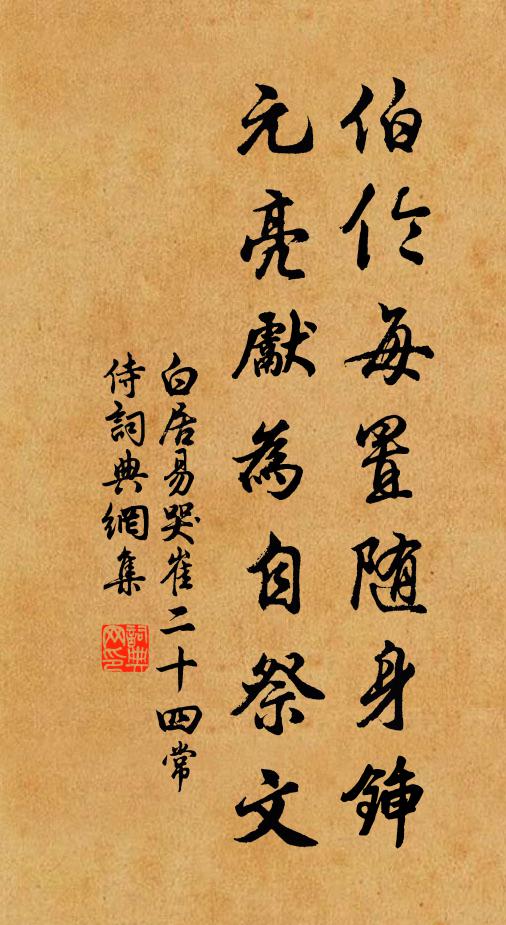 伯伦每置随身鍤
元亮獻為自祭文
白居易哭崔二十四常
侍詞典網集
詞典網印